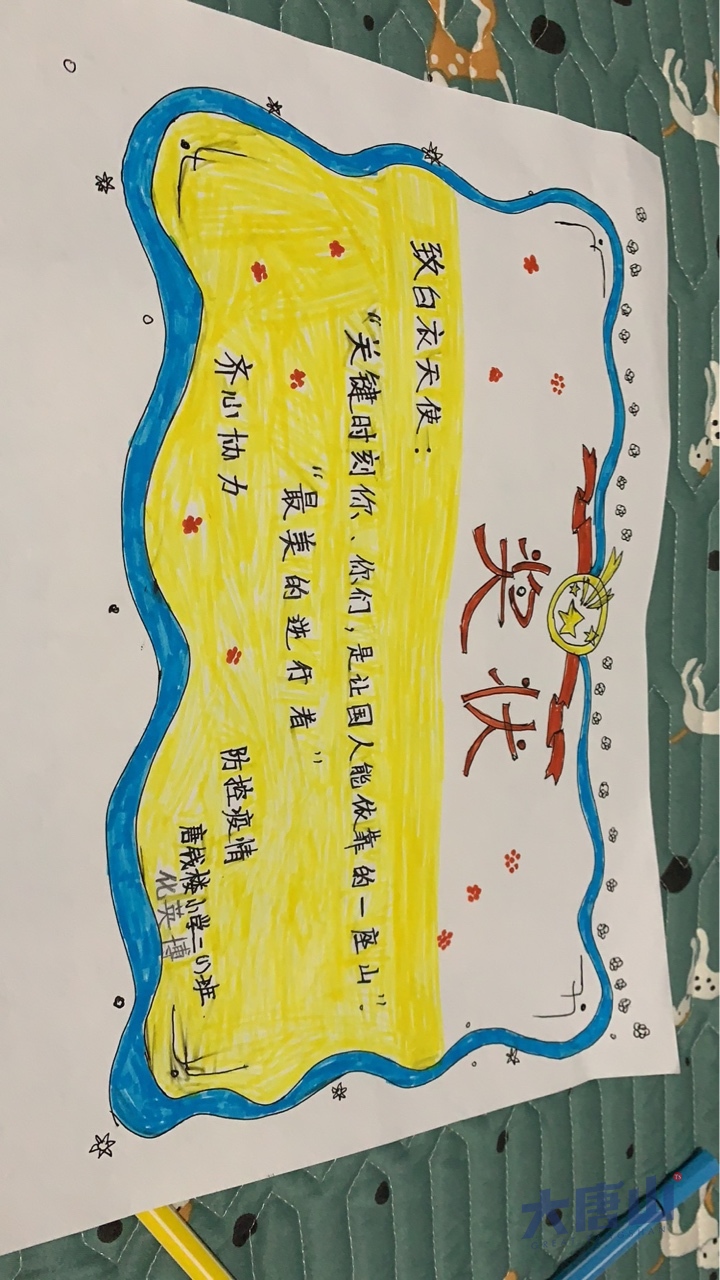 奖状
致白衣天使：
“关键时刻你、你们，是让国人能依靠的一座山”.
“最美的逆行者”
齐心协力 防控疫情
唐钱楼小学二(1)班
化英博
大唐山